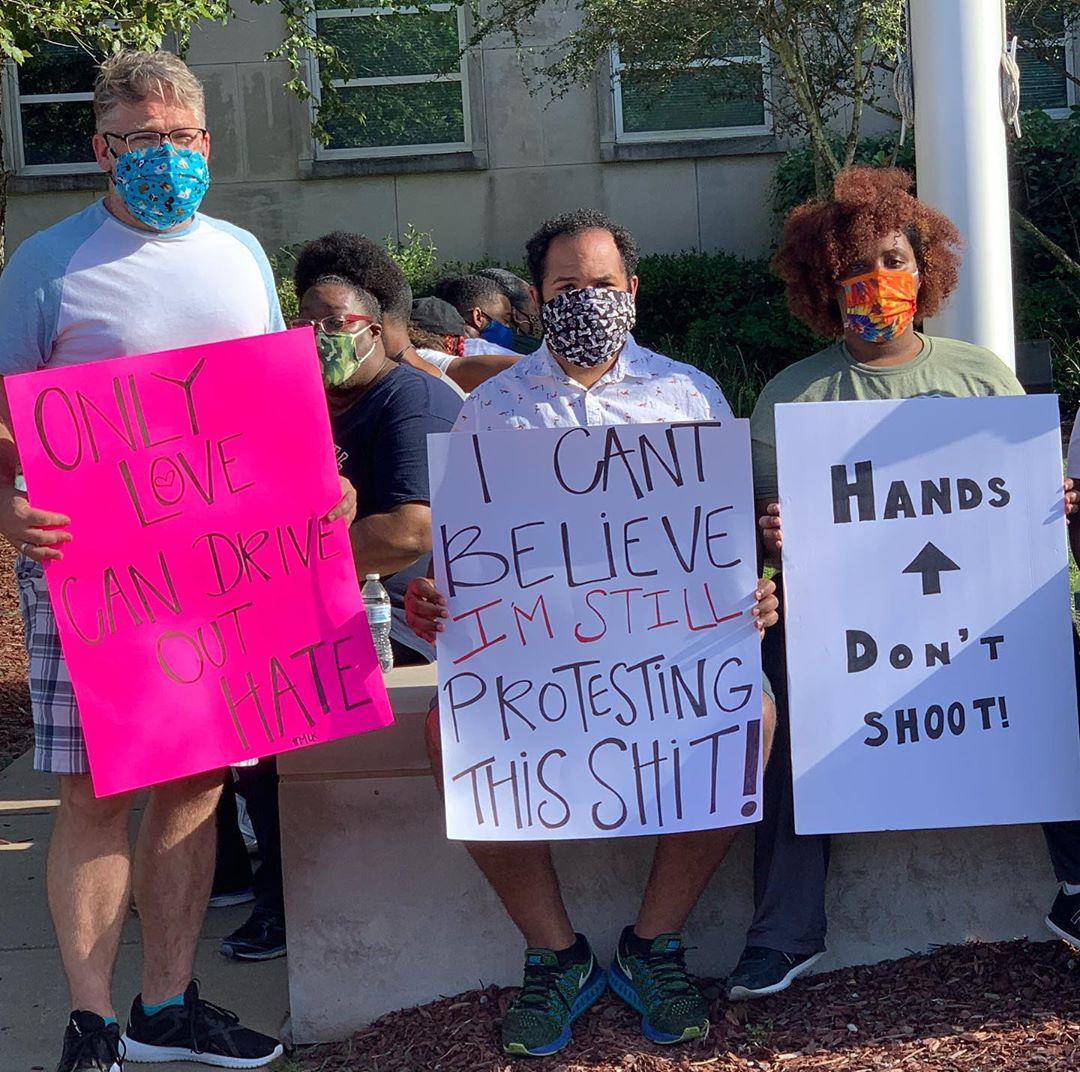 ONLY
LOVE
CAN DRIVE
OUT
HATE
#MLK
I CANT
BELIEVE
IM STILL
PROTESTING
THIS SHIT!
HANDS
DON'T
SHOOT!